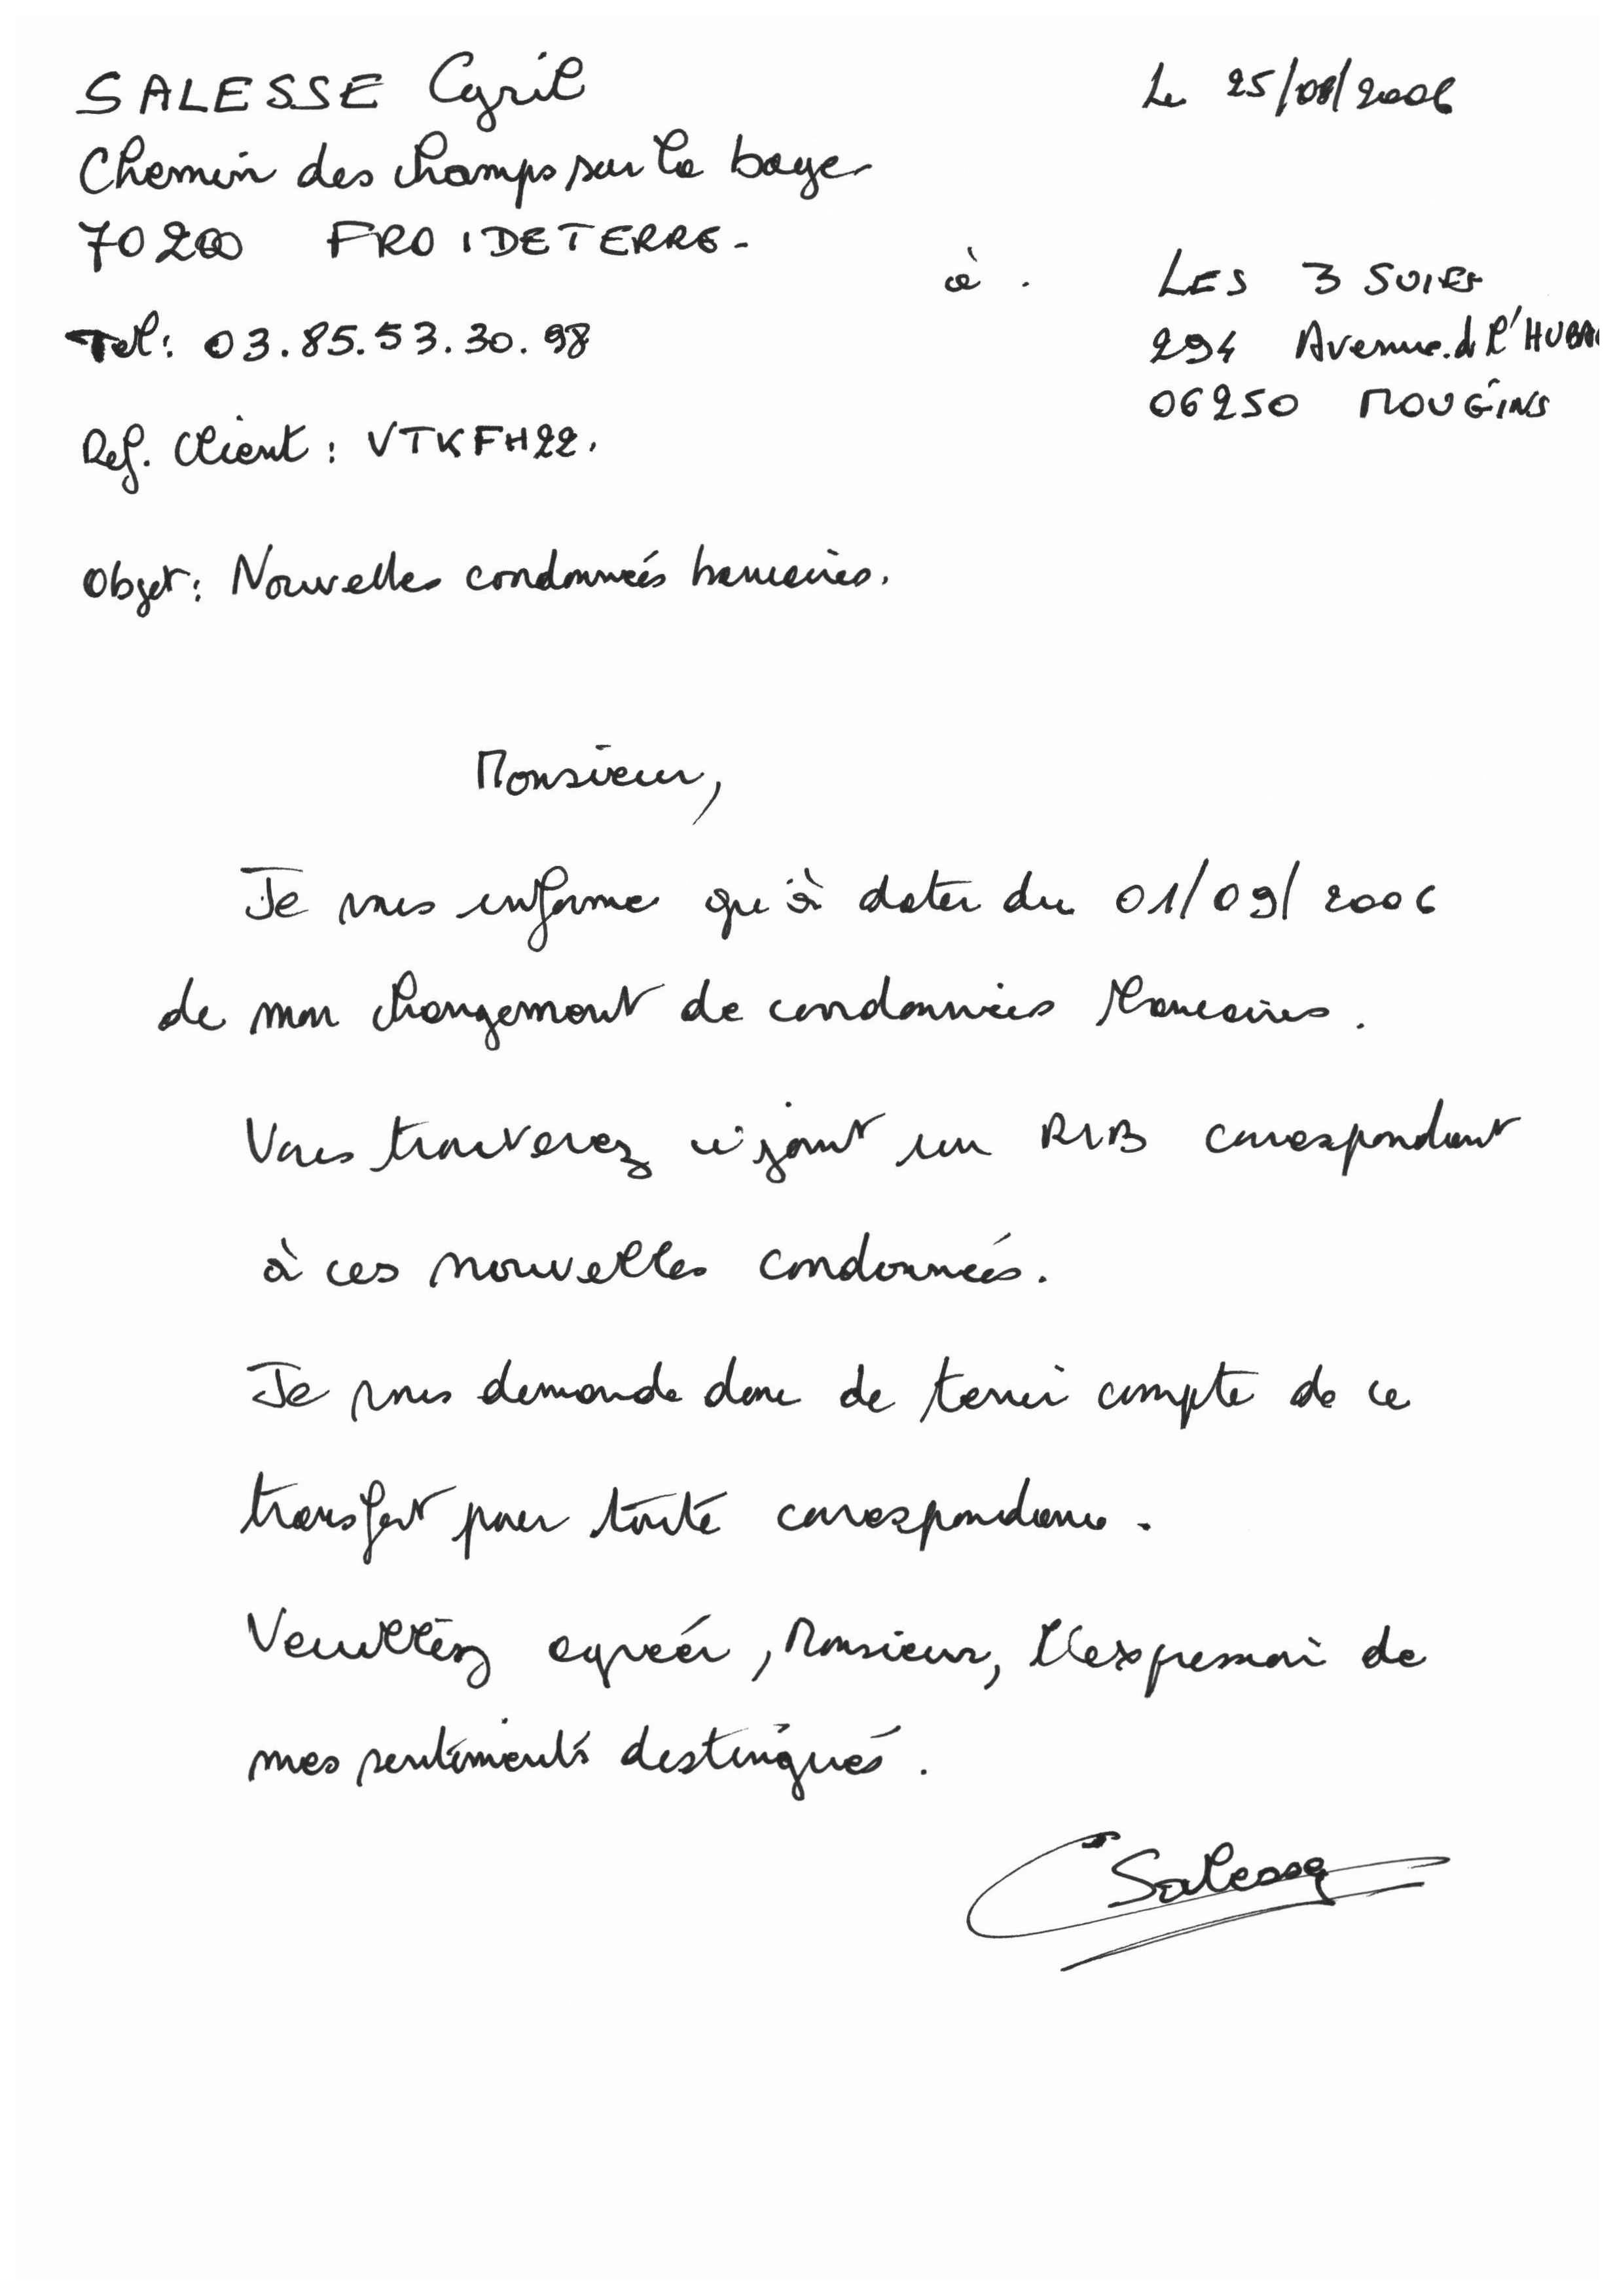 SALESSE Cyril
Le 25/08/2006
Chemin des champs sur la baye
70200 FROIDETERRE-
à.
LES 3 SUISSES
Tel: 03.85.53.30.98
294 Avenue de l'HUBA
06250 MOUGINS
Ref. Client: VTKFH22.
Objet: Nouvelles coordonnées bancaires.
Monsieur,
Je vous informe qu'à dater du 01/09/2006
de mon changement de coordonnées bancaires.
Vous trouverez ci joint un RIB correspondant
à ces nouvelles coordonnées.
Je vous demande donc de tenir compte de ce
transfert pour toute correspondance.
Veuillez agréer, Monsieur, l'expression de
mes sentiments distingués.
Salesse